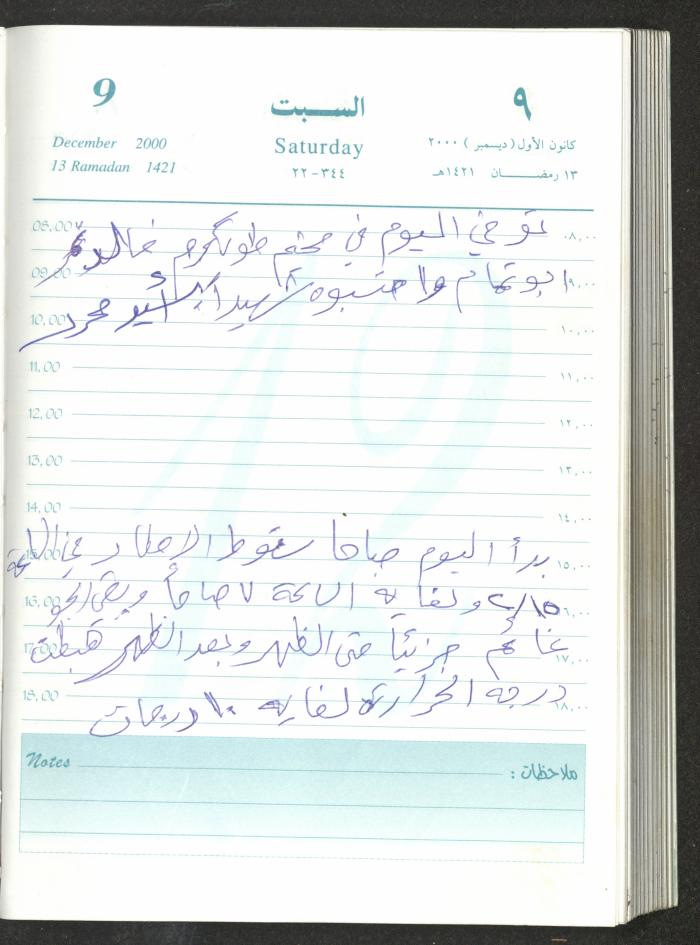 9
السبت
٩
December 2000
Saturday
كانون الأول (ديسمبر) ٢٠٠٠
13 Ramadan 1421
٣٤٤-٢٢
١٣ رمضان ١٤٢١هـ
08.00 توفي اليوم في مخيم طولكرم خالد ٠٨,٠٠
09.00 ابو تمام واحتسبوه شهيدا ٠٩,٠٠
10.00 ١٠,٠٠
11.00 ١١,٠٠
12.00 ١٢,٠٠
13.00 ١٣,٠٠
14.00 ١٤,٠٠
15.00 بدأ اليوم صباحا سقوط الامطار في الساعة ١٥,٠٠
16.00 ولغاية الساعة ٧ صباحاً وبقي الجو ١٦,٠٠
17.00 غائم جزئياً حتى الظهر وبعد الظهر هبطت ١٧,٠٠
18.00 درجة الحرارة لغاية ١٠ درجات ١٨,٠٠
Notes
ملاحظات :